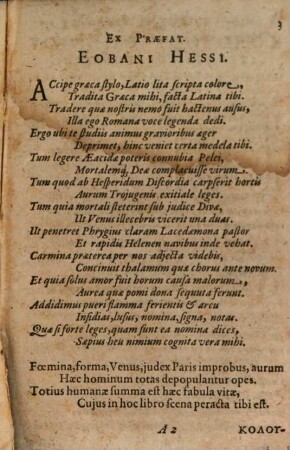 3
EX PRÆFAT.
EOBANI HESSI.
ACcipe græca stylo, Latio lita scripta colore,
Tradita Græca mihi, facta Latina tibi.
Tradere quæ nostrûm nemo fuit hactenus ausus,
Illa ego Romana voce legenda dedi.
Ergo ubi te studiis animus gravioribus æger
Deprimet, hinc veniet certa medela tibi.
Tum legere Æacidæ poteris connubia Pelei,
Mortalemq; Deæ complacuisse virum.
Tum quod ab Hesperidum Discordia carpserit hortis
Aurum Trojugenis exitiale leges.
Tum quia mortali steterint sub judice Divæ,
Ut Venus illecebris vicerit una duas.
Ut penetret Phrygius claram Lacedæmona pastor
Et rapidis Helenem navibus inde vehat.
Carmina præterea per nos adjecta videbis,
Concinuit thalamum quæ chorus ante novum.
Et quia solus amor fuit horum causa malorum,
Aurea quæ pomi dona sequuta ferunt.
Addidimus pueri flamma ferientis & arcu
Insidias, lusus, nomina, signa, notas.
Quæ si forte leges, quam sunt ea nomina dices,
Sæpius heu nimium cognita vera mihi.
Fœmina, forma, Venus, judex Paris improbus, aurum
Hæc hominum totas depopulantur opes.
Totius humanæ summa est hæc fabula vitæ,
Cujus in hoc libro scena peracta tibi est.
A 2 ΚΟΛΟΥ-